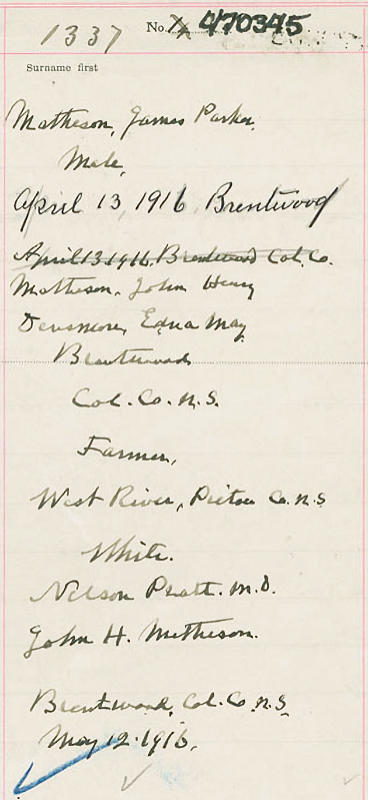 1337 No. 470345
Surname first
Matheson, James Parker,
Male,
April 13, 1916, Brentwood
April 13 1916, Brentwood Col. Co.
Matheson, John Henry
Densmore, Edna May
Brentwood
Col. Co. N.S.
Farmer,
West River, Pictou Co. N.S
White.
Nelson Pratt. M.D.
John H. Matheson.
Brentwood, Col. Co. N.S.
May 12. 1916.